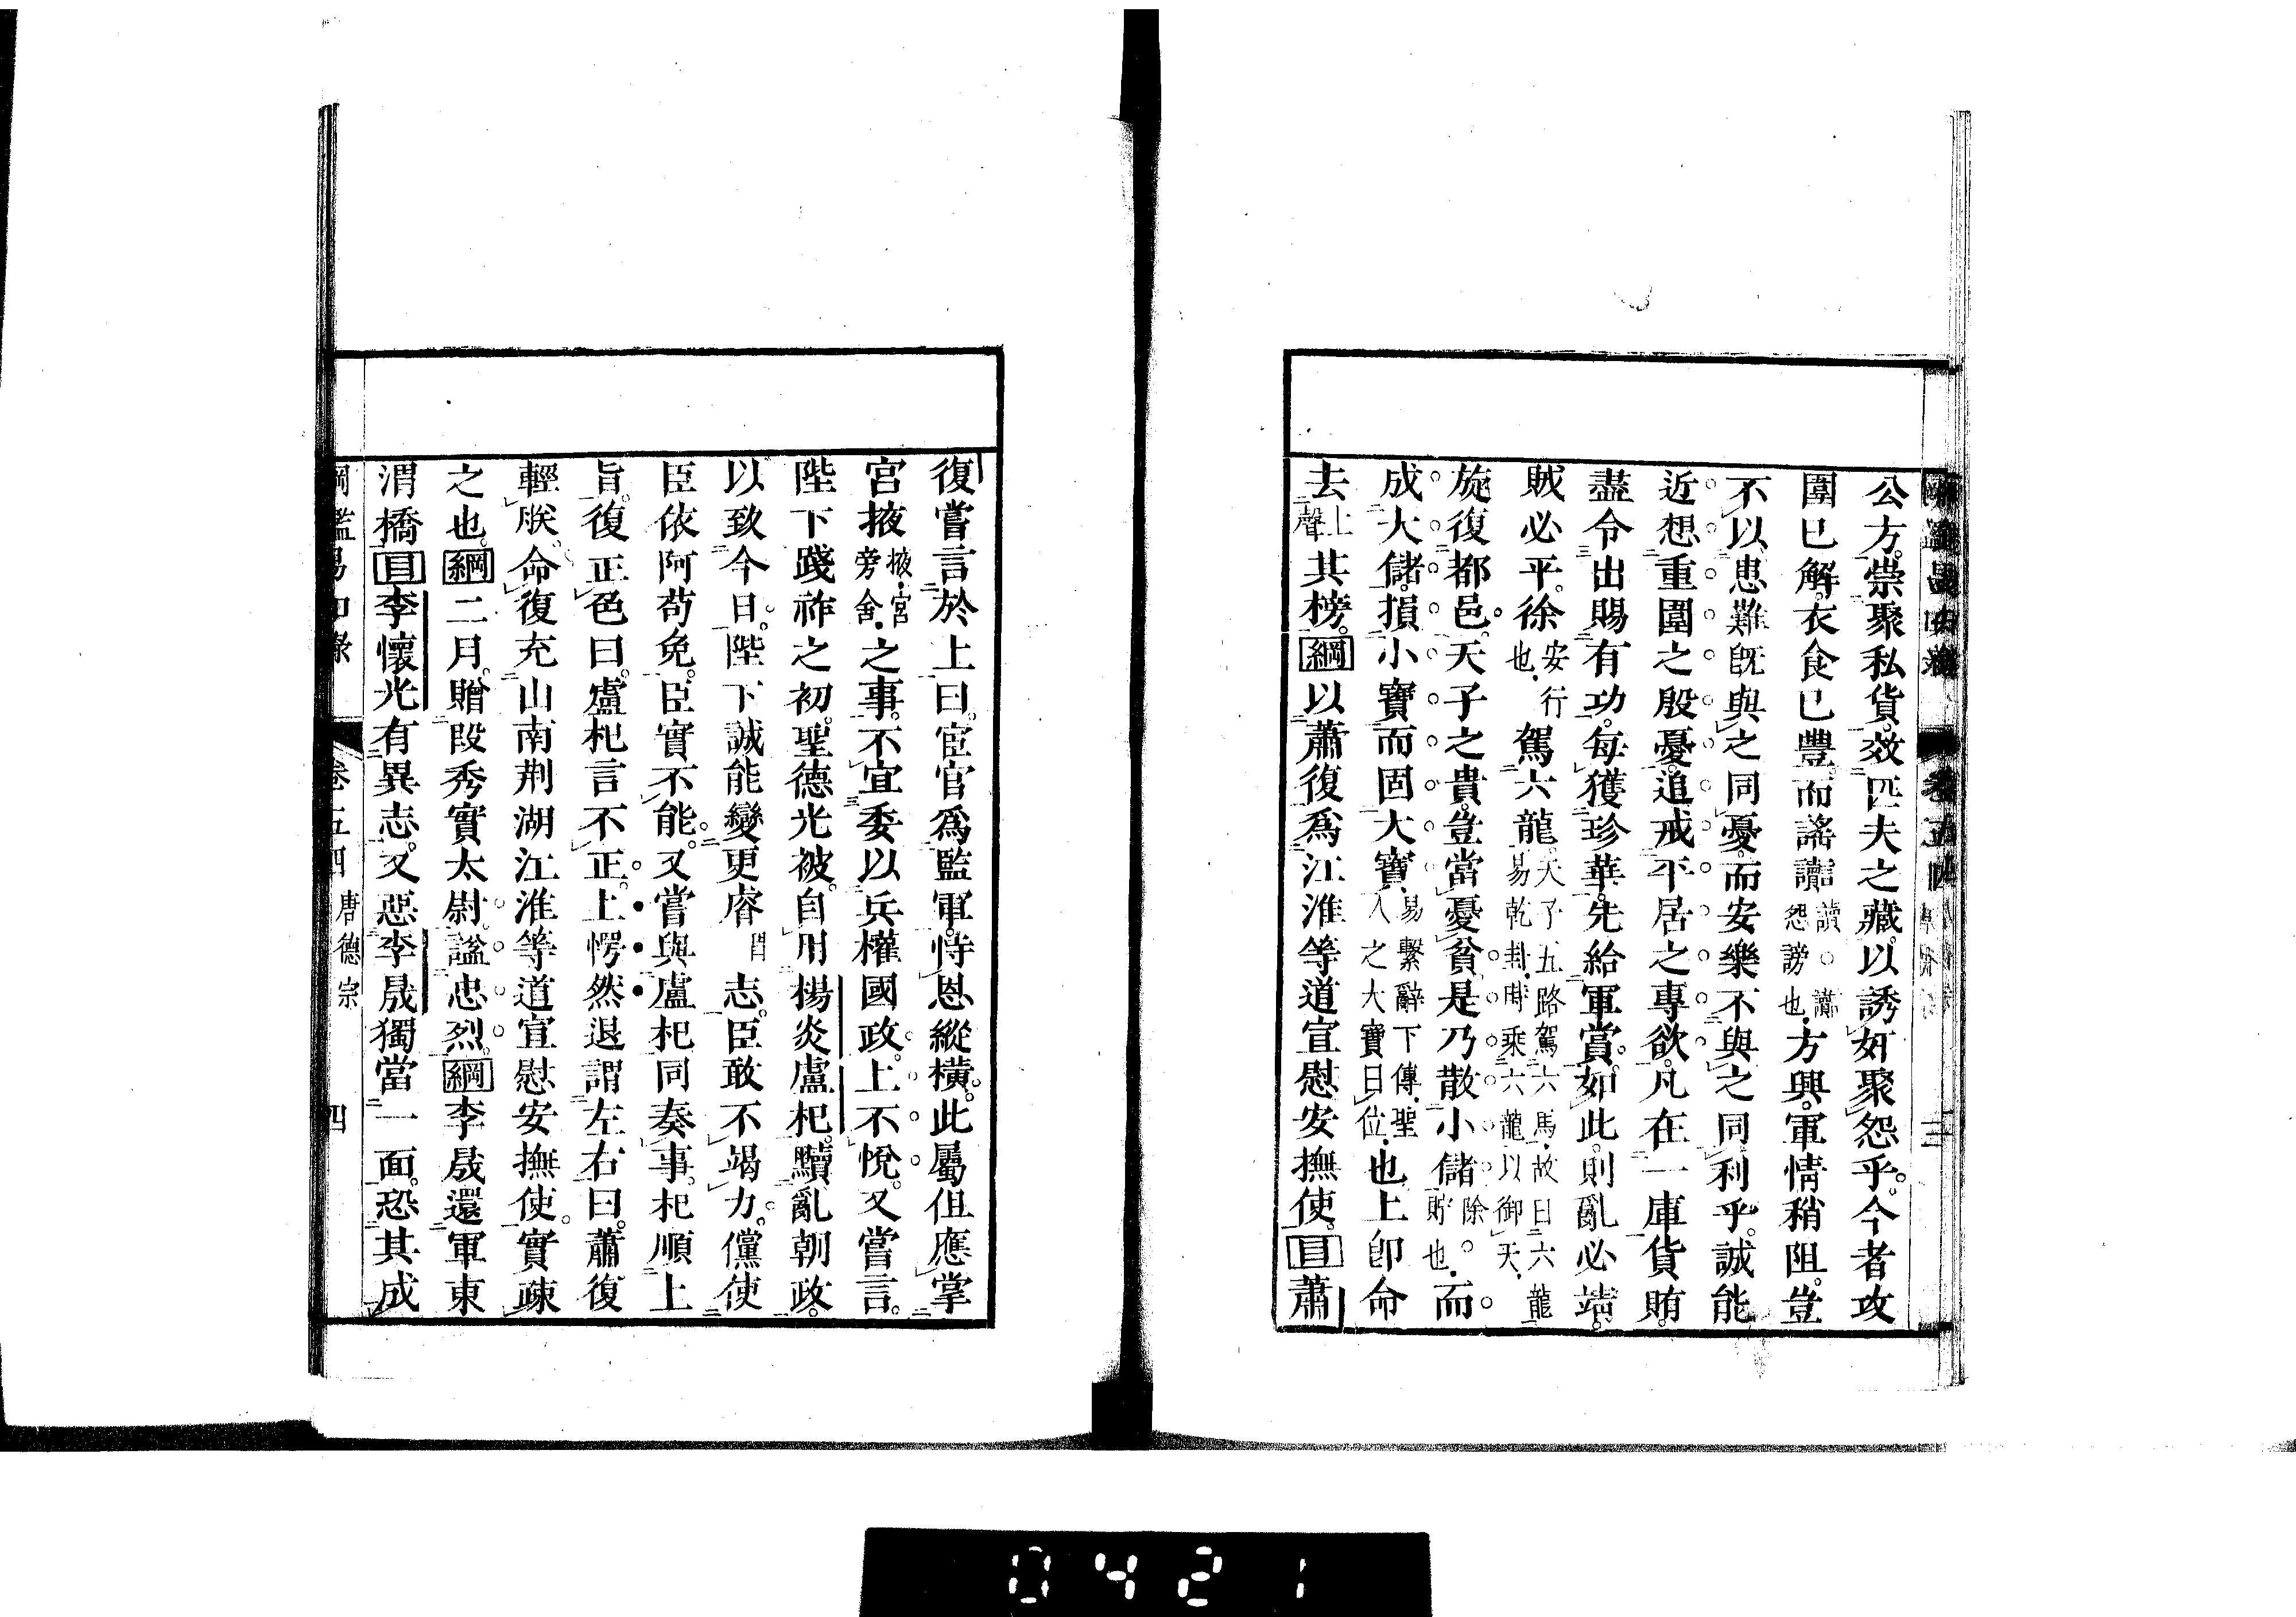 公方。崇聚私貨。效匹夫之藏。以誘奸聚怨乎。今者攻
圍已解。衣食已豐。而謠讟讀。讟怨謗也。方興。軍情稍阻。豈
不以患難既與之同憂。而安樂不與之同利乎。誠能
近想重圍之殷憂。追戒平居之專欲。凡在一庫貨賄。
盡令出賜有功。每獲珍華。先給軍賞。如此。則亂必靖。
賊必平。徐安行也。駕六龍。天子五路駕六馬。故曰六龍易乾卦。時乘六龍以御天。
旋復都邑。天子之貴。豈當憂貧。是乃散小儲除。貯也。而
成大儲。損小寶而固大寶。易繫辭下傳。聖人之大寶曰位。也上卽命
去上聲其榜。綱以蕭復爲江淮等道宣慰安撫使。目蕭
復嘗言於上曰。宦官爲監軍。恃恩縱橫。此屬但應掌
宮掖掖。宮旁舍。之事。不宜委以兵權國政。上不悅。又嘗言。
陛下踐祚之初。聖德光被。自用楊炎盧杞。黷亂朝政。
以致今日。陛下誠能變更睿志。臣敢不竭力。儻使
臣依阿苟免。臣實不能。又嘗與盧杞同奏事。杞順上
旨。復正色曰。盧杞言不正。上愕然退謂左右曰。蕭復
輕朕。命復充山南荆湖江淮等道宣慰安撫使。實疎
之也。綱二月。贈段秀實太尉。諡忠烈。綱李晟還軍東
渭橋目李懷光有異志。又惡李晟獨當一面。恐其成
綱鑑易知錄 卷五四 唐德宗 四
0421